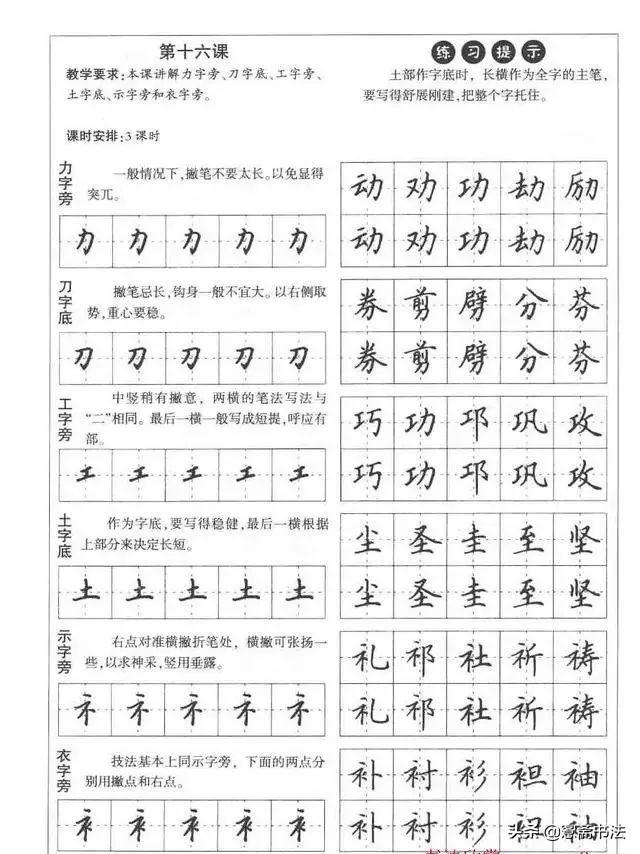 第十六课
教学要求:本课讲解力字旁、刀字底、工字旁、
土字底、示字旁和衣字旁。
课时安排:3课时
练习提示
土部作字底时，长横作为全字的主笔，
要写得舒展刚建,把整个字托住。
力字旁
一般情况下,撇笔不要太长。以免显得
突兀。
力力力力力
动劝功劫励
动劝功劫励
刀字底
撇笔忌长,钩身一般不宜大。以右侧取
势,重心要稳。
刀刀刀刀刀
券剪劈分芬
券剪劈分芬
工字旁
中竖稍有撇意，两横的笔法写法与
“二”相同。最后一横一般写成短提,呼应有
部。
工工工工工
巧功邛巩攻
巧功邛巩攻
土字底
作为字底,要写得稳健,最后一横根据
上部分来决定长短。
土土土土土
尘圣圭至坚
尘圣圭至坚
示字旁
右点对准横撇折笔处，横撇可张扬一
些,以求神采,竖用垂露。
礻礻礻礻礻
礼祁社祈祷
礼祁社祈祷
衣字旁
技法基本上同示字旁，下面的两点分
别用撇点和右点。
衤衤衤衤衤
补衬衫袒袖
补衬衫袒袖
头条@慧斋书法